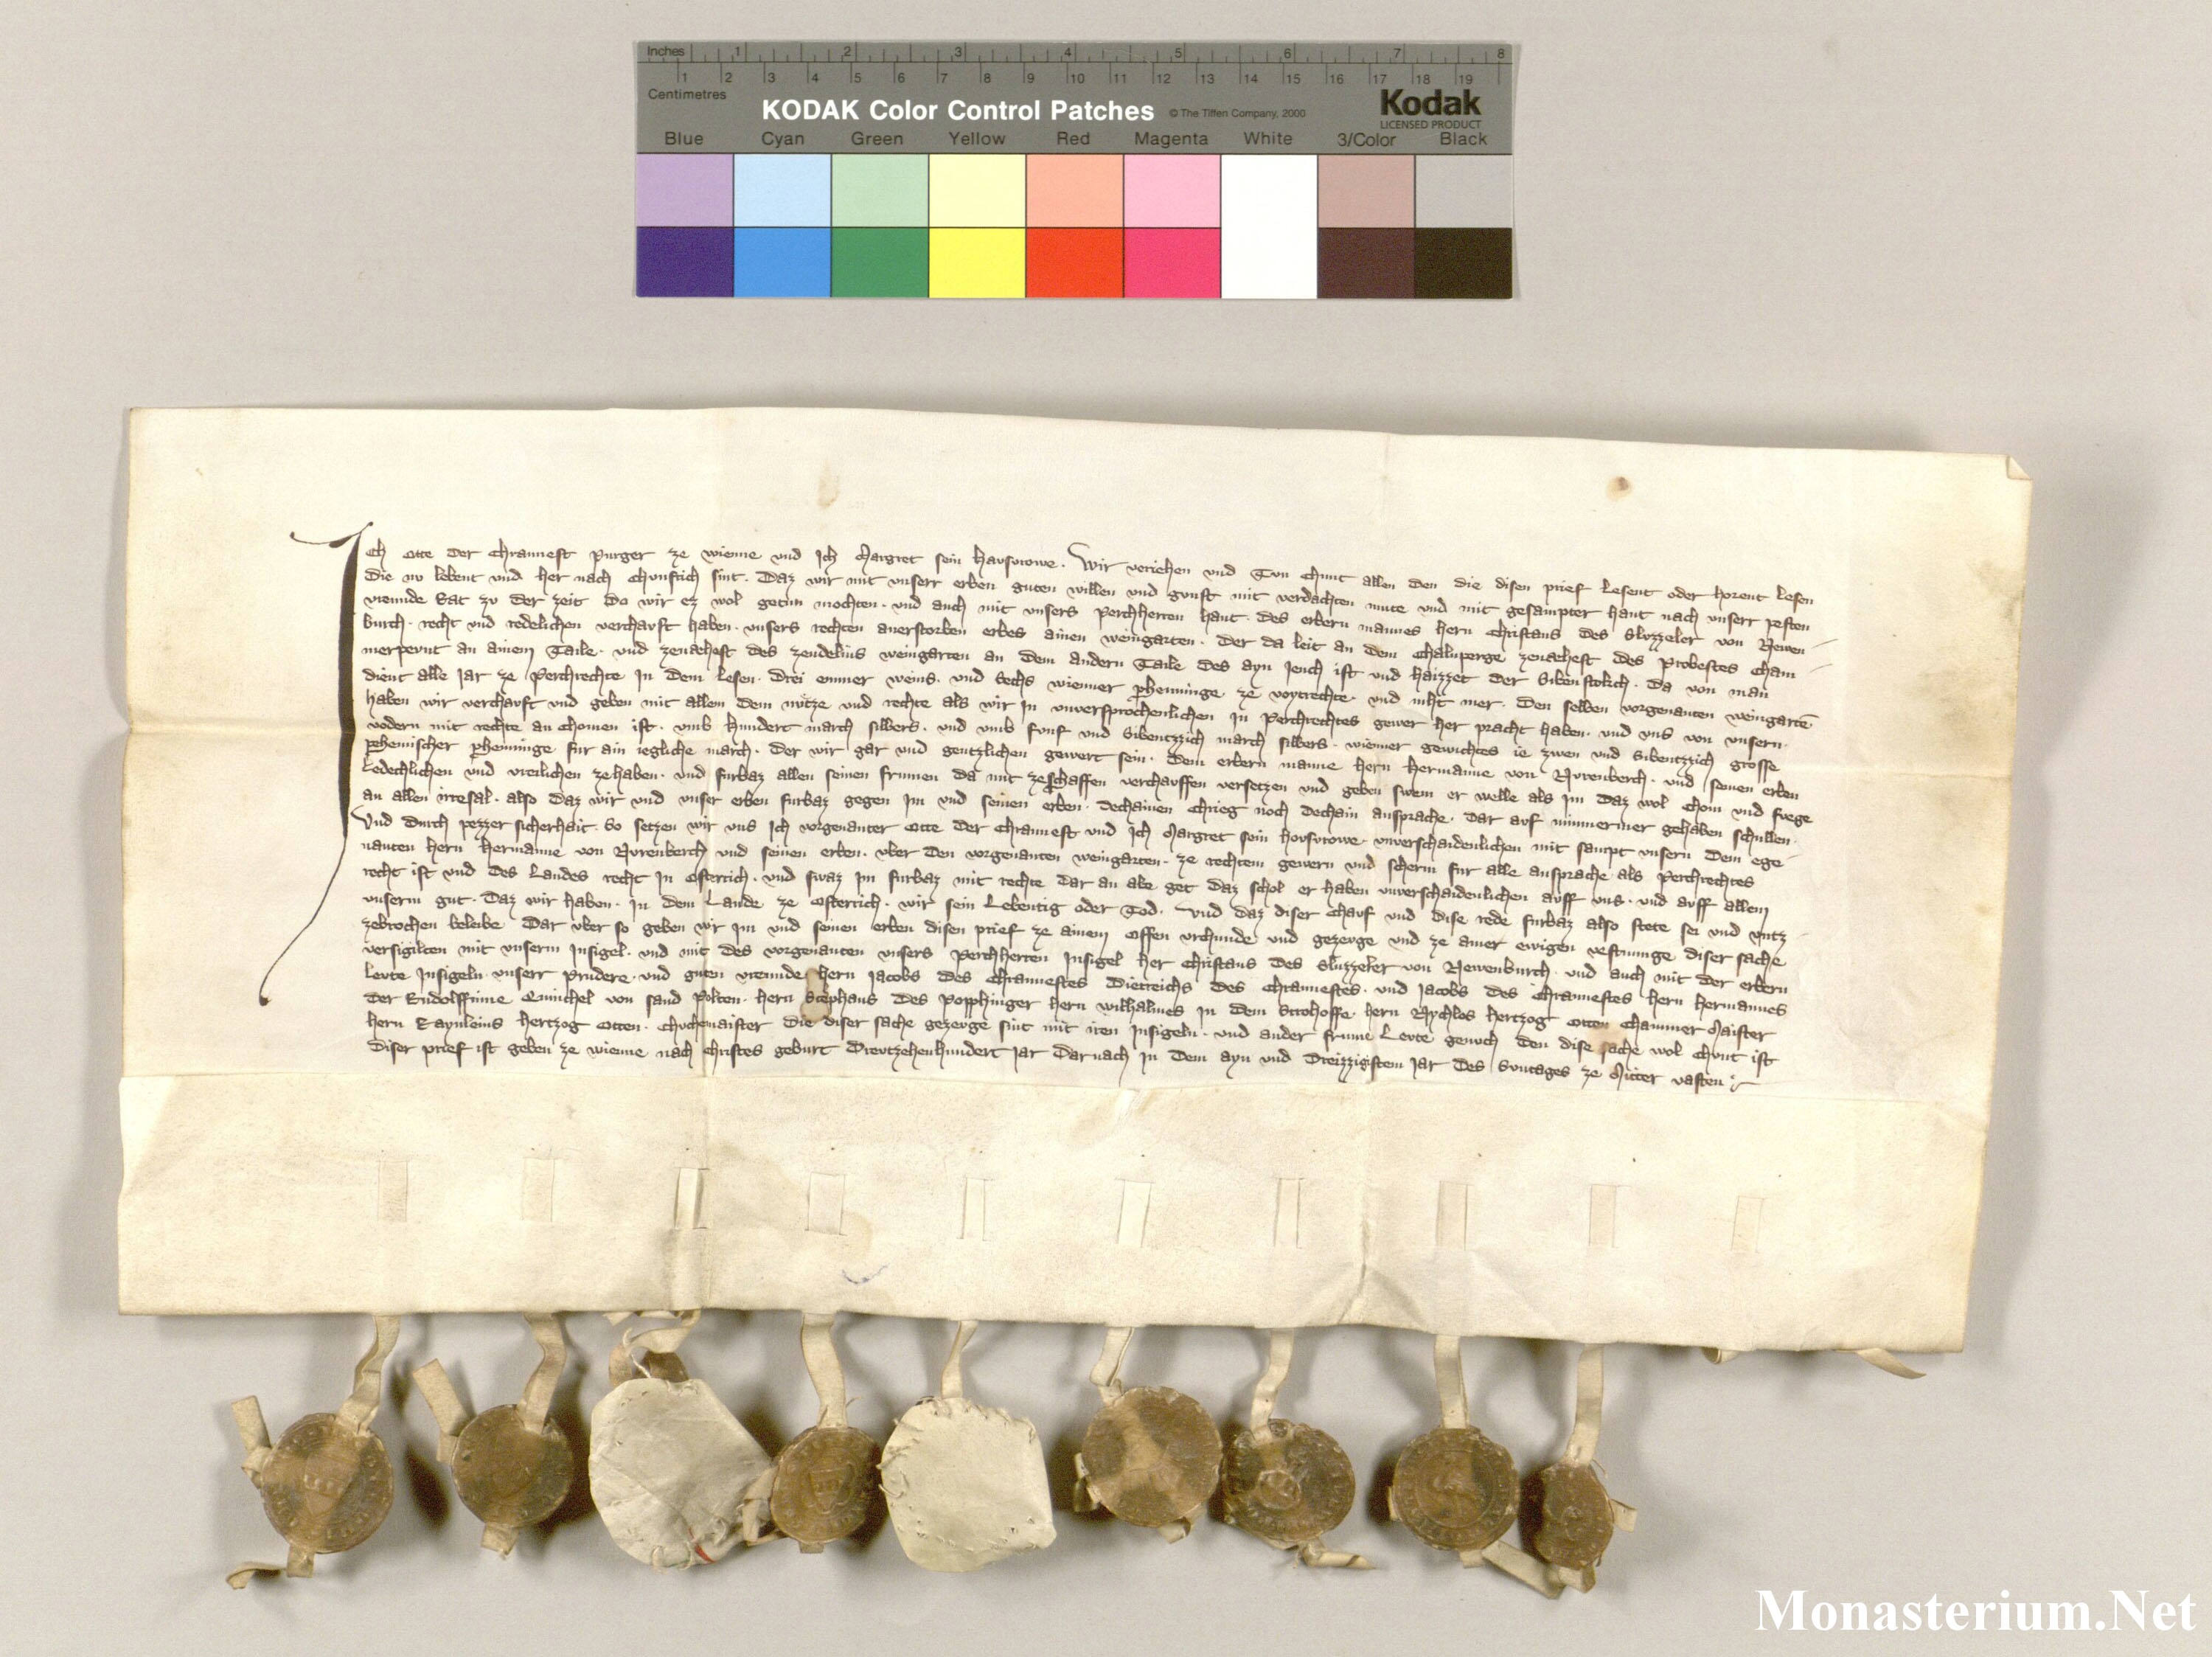 Inches 1 2 3 4 5 6 7 8
1 2 3 4 5 6 7 8 9 10 11 12 13 14 15 16 17 18 19
Centimetres
KODAK Color Control Patches © The Tiffen Company, 2000 Kodak
LICENSED PRODUCT
Blue Cyan Green Yellow Red Magenta White 3/Color Black
Ich Otte der Chrannest purger ze wienne und Ich Margret sein hausvrowe. Wir veriehen und Tun chunt allen den die disen prief lesent oder horent lesen
die nv lebent und her nach chunftich sint. Daz wir mit unserr erben guten willen und gunst mit verdachten mute und mit gesampter hant nach unserr pesten
vreunde Rat zv der zeit do wir ez wol getun mochten. und auch mit unsers perchherren hant. des erbern mannes hern Christans des Sluzzeler von Newen-
burch. recht und redelichen verchauft haben. unsers rechten anerstorben erbes ainen weingarten. der da leit an dem Chalnperge zenaehst des probestes Cham-
merpevnt an ainem Taile. und zenaehst des zendelins weingarten an dem andern Taile des ayn Jeuch ist und haizzet der Sibenstokch. da von man
dient alle Jar ze perchrechte In dem lesen. drei emmer weins. und Sechs wienner phenninge ze voytrechte. und niht mer. den selben vorgenanten weingarte
haben wir verchauft und geben mit allem dem nutze und rechte als wir in unversprochenlichen In perchrechtes gewer her pracht haben. und uns von unsern.
vodern mit rechte an chomen ist. umb hundert march silbers. und umb funf und Sibentzzich march silbers. wienner gewichtes ie zwen und Sibentzzich grosse
pehemischer phenninge fur ain iegliche march. der wir gar und gentzlichen gewert sein. dem erbern manne hern hermanne von Nurenberch. und seinen erben
ledechlichen und vreilichen zehaben. und furbaz allen seinen frumen da mit zeschaffen verchauffen versetzen und geben swem er welle als im daz wol chom und fuege
an allen irresal. also daz wir und unser erben furbaz gegen im und seinen erben. dechainen chrieg noch dechain ansprache. dar auf nimmermer gehaben schullen.
Und durch pezzer sicherhait. So setzen wir uns Ich vorgenanter Otte der Chrannest und Ich Margret sein housvrowe. unverschaidenlichen mit sampt unsern dem ege-
nanten hern hermanne von Nurenberch und seinen erben. uber den vorgenanten weingarten. ze rechtem gewern und scherm fur alle ansprache als perchrechtes
recht ist und des Landes recht in Osterrich. und swaz im furbaz mit rechte dar an abe get daz schol er haben unverschaidenlichen auff uns. und auff allem
unserm gut. Daz wir haben. in dem Lande ze Osterrich. wir sein Lebentig oder Tod. Und daz diser Chauf und dise rede furbaz also stete sei und untz-
zebrochen beleibe Dar uber so geben wir im und seinen erben disen prief ze ainem offen urchunde und gezeuge und ze ainer ewigen vestnunge diser sache
versigilten mit unserm Insigel. und mit des vorgenanten unsers perchherren Insigel her Christans des Sluzzeler von Newenburch. und auch mit der erbern
Leute Insigeln unserr prudere. und guten vreunde hern Jacobs des Chrannestes Dietreichs des Chrannestes. und Jacobs des Chrannestes hern hermannes
der Rudolffinne Eninchel von sand polten. hern Stephans des popphinger hern wilhalmes in dem Strohoffe. hern Nychlos hertzog Otten Chammer Maister
hern Raynleins hertzog Otten. Chuchemaister die diser sache gezeuge sint mit iren Insigeln. und ander frume Leute genuch den dise sache wol chunt ist
Diser prief ist geben ze wienne nach Christes geburt Dreutzehenhundert Jar dar nach in dem ayn und Dreizzigistem Jar des Suntages ze Mitter vasten
Monasterium.Net